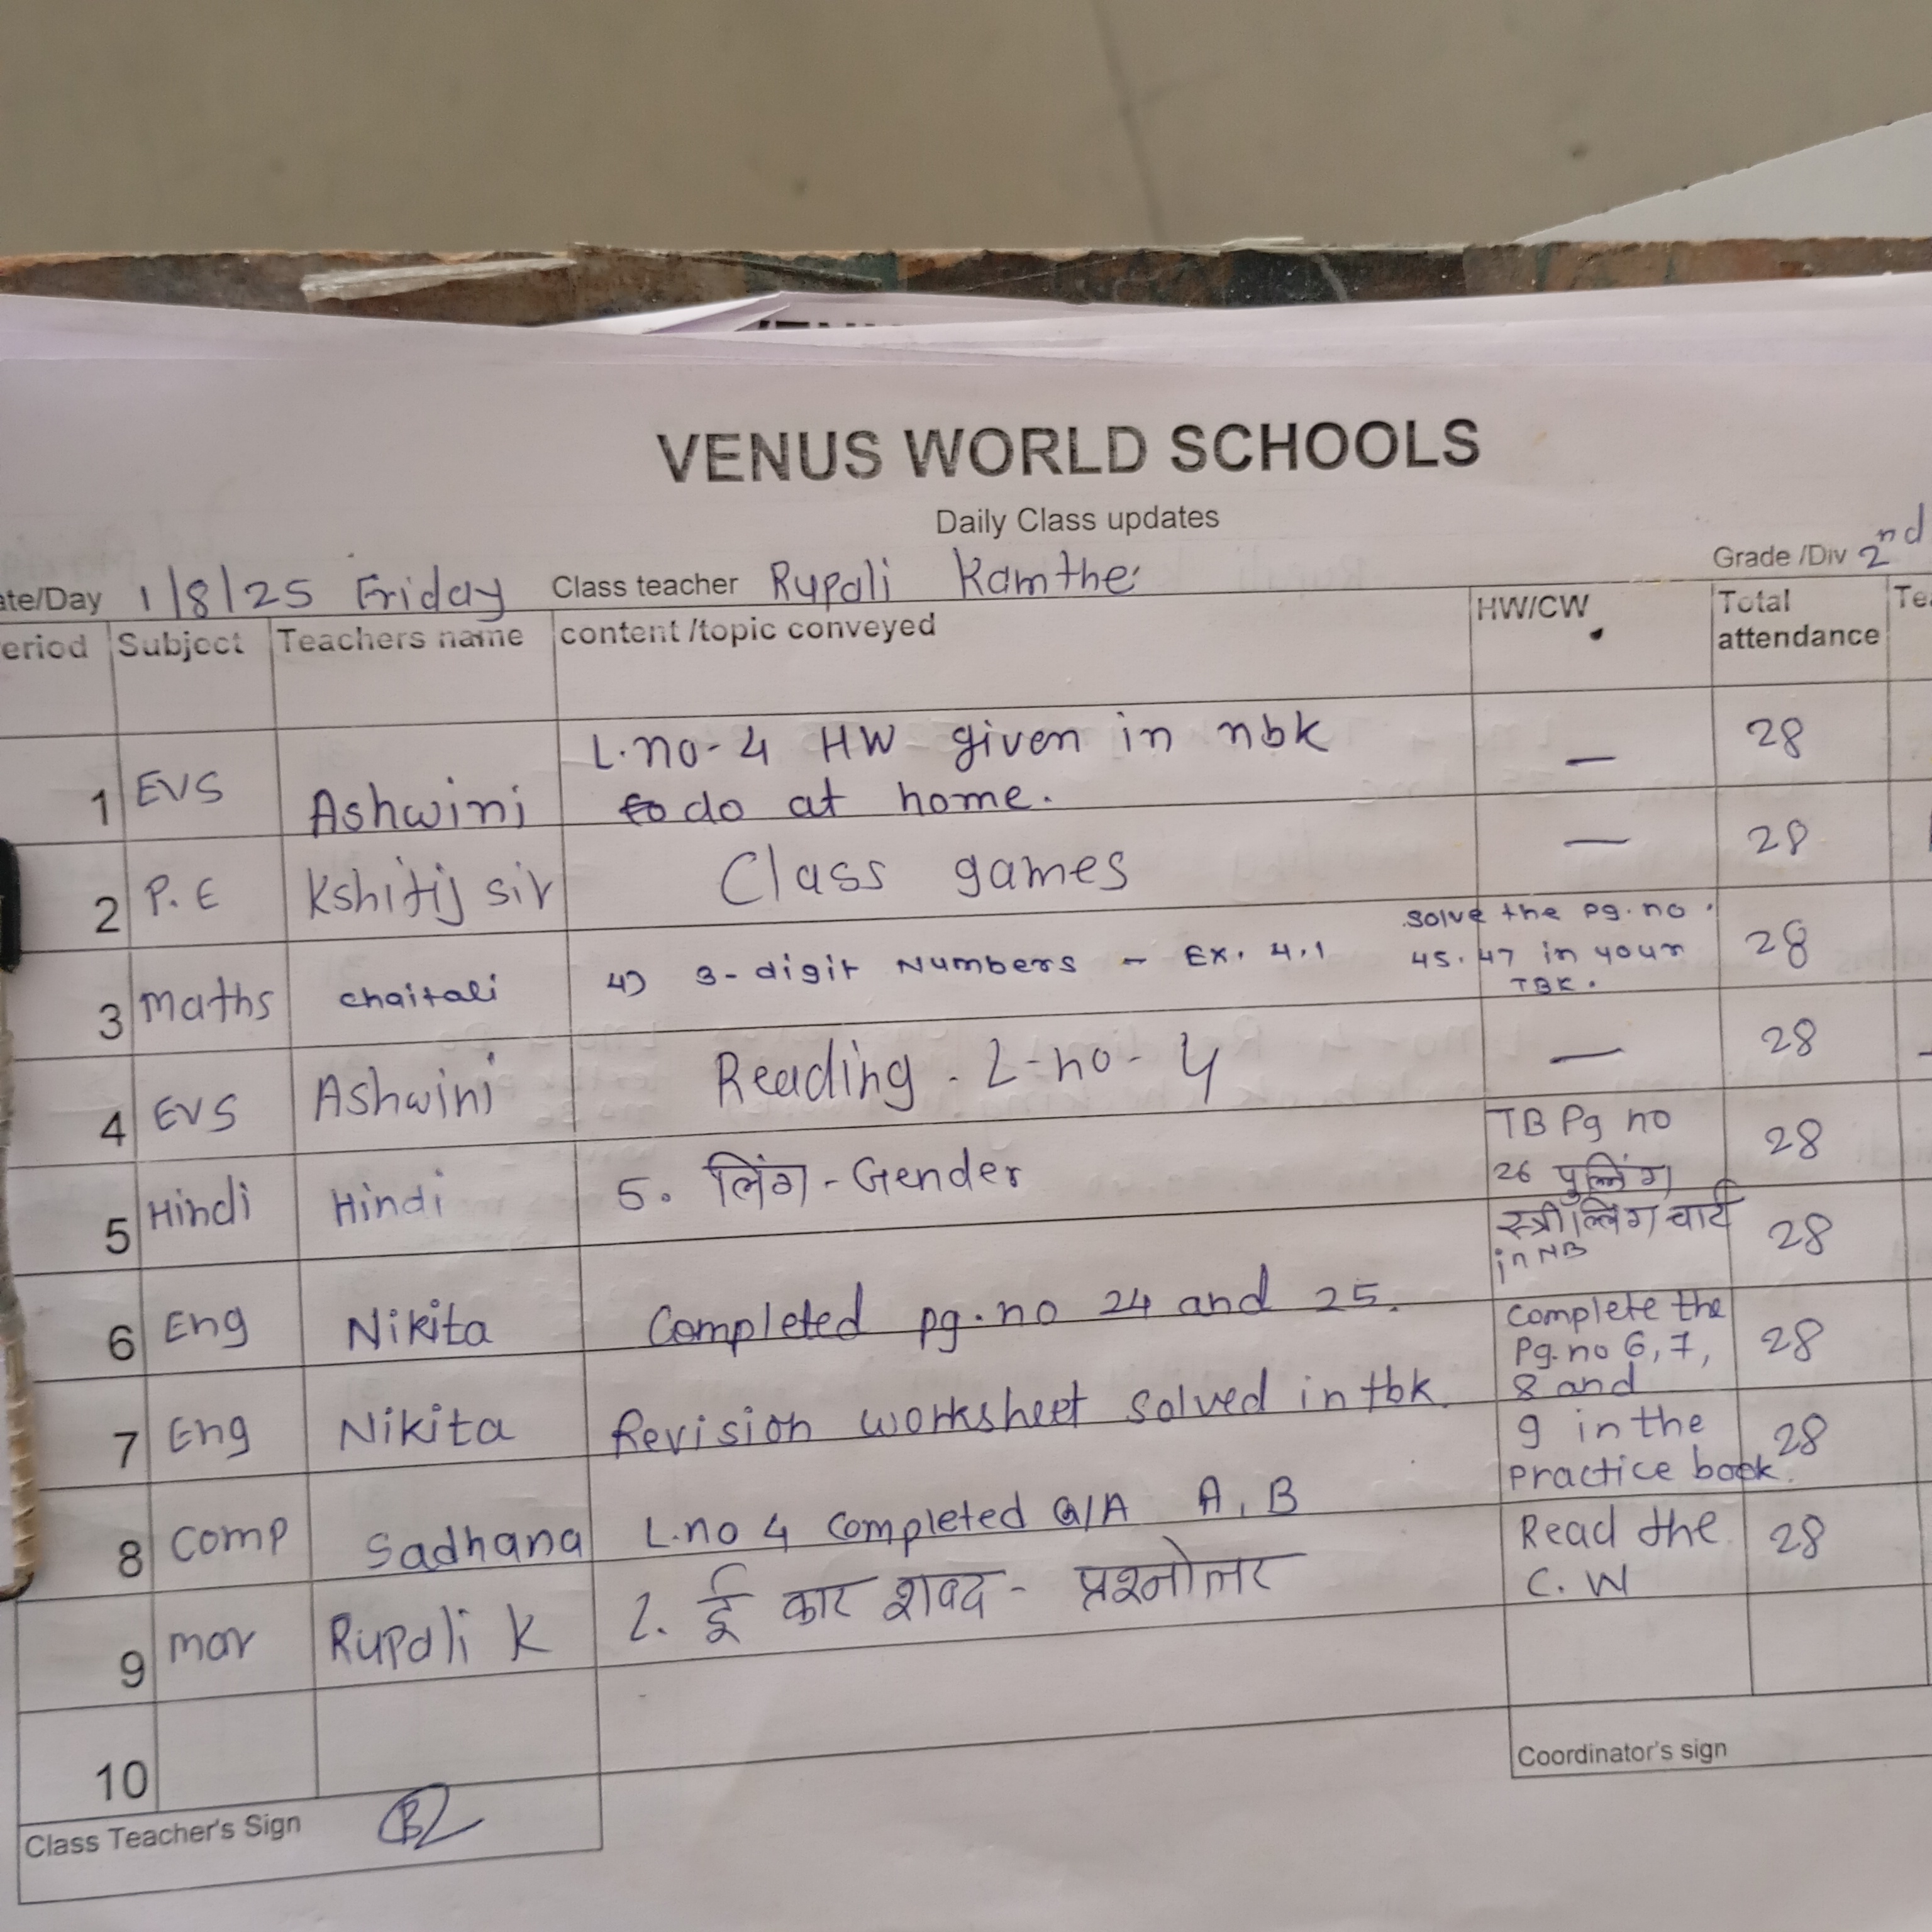 VENUS WORLD SCHOOLS
Daily Class updates
ate/Day 1/8/25 Friday Class teacher Rupali Kamthe Grade /Div 2nd
eriod Subject Teachers name content /topic conveyed HW/CW Total attendance Te
1 EVS Ashwini L.no-4 HW given in nbk — 28
to do at home.
2 P.E Kshitij sir Class games — 28
3 Maths chaitali 4) 3-digit Numbers - Ex. 4.1 solve the pg.no. 28
45.47 in your
TBK.
4 EVS Ashwini Reading - L-no-4 — 28
5 Hindi Hindi 5. लिंग - Gender TB Pg no 28
26 पुल्लिंग
स्त्रीलिंग चार्ट 28
in NB
6 Eng Nikita Completed pg.no 24 and 25. Complete the
Pg.no 6,7, 28
8 and
7 Eng Nikita Revision worksheet solved in tbk. 9 in the 28
practice book.
8 Comp Sadhana L.no 4 completed Q/A A, B Read the 28
C.W
9 mar Rupali K 2. ई कार शब्द - प्रश्नोत्तर
10
Coordinator's sign
Class Teacher's Sign